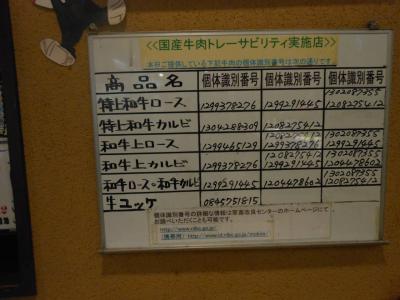 <<国産牛肉トレーサビリティ実施店>>
本日ご提供している下記牛肉の個体識別番号は次の通りです。
商品名 個体識別番号 個体識別番号 個体識別番号
特上和牛ロース 1299378276 1299291445 1302087355 1208275412
特上和牛カルビ 1304288309 1208275412
和牛上ロース 1299465129 1208275412 1299378276 1302087355 1299291445
和牛上カルビ 1299378276 1208275412 1299291445 1302087355 1204478602
和牛ロース・和牛カルビ 1299291445 1204478602 1302087355 1208275412
牛ユッケ 0845751815
個体識別番号の詳細な情報は家畜改良センターのホームページにて
お調べいただくことも可能です。
http://www.nlbc.go.jp/
(携帯用) http://www.id.nlbc.go.jp/mobile/